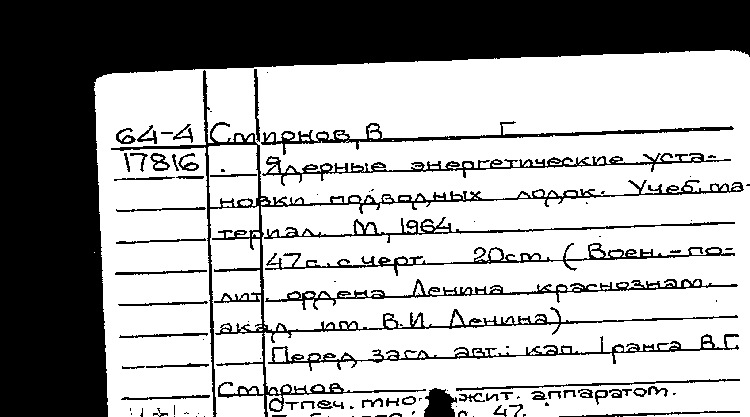 64-4 Смирнов, В Г
17816 . Ядерные энергетические уста-
новки подводных лодок. Учеб. ма-
териал. М., 1964.
47 с. с черт. 20 см. (Воен.-по-
лит. ордена Ленина краснознам.
акад. им. В.И. Ленина)
Перед загл. авт.: кап. I ранга В.Г.
Смирнов.
Отпеч. аппаратом.
47.